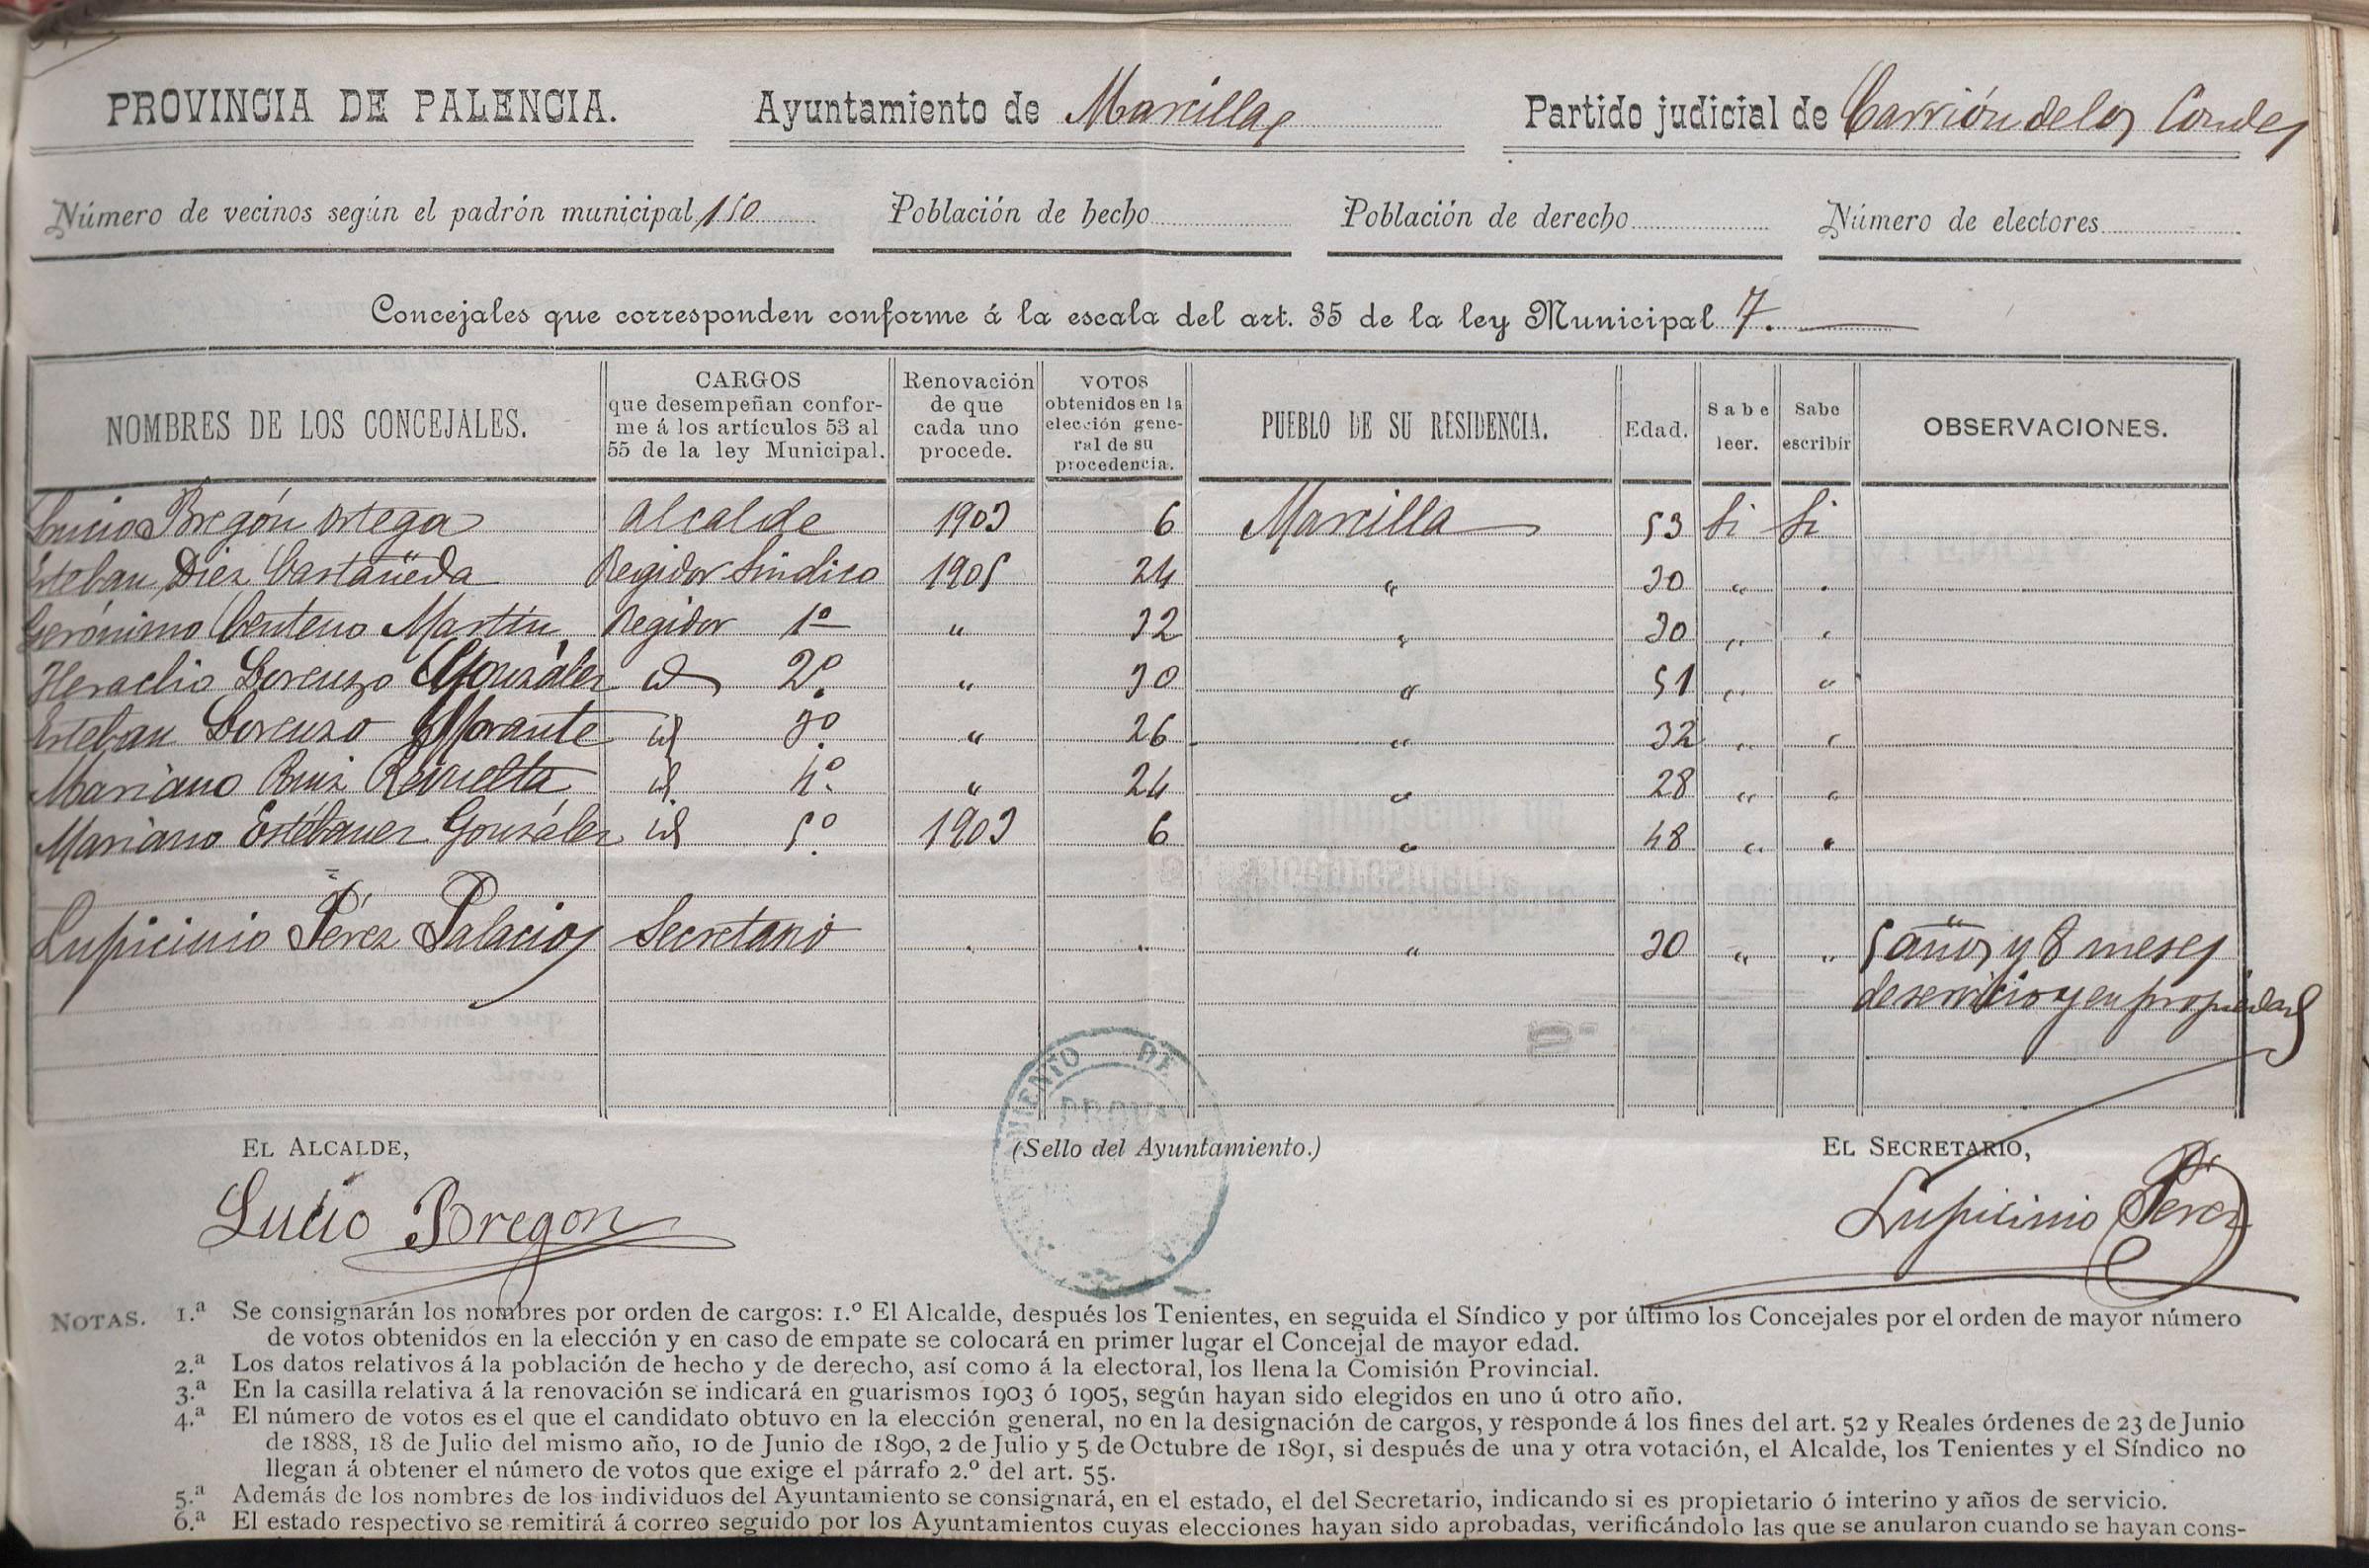 PROVINCIA DE PALENCIA. Ayuntamiento de Marcilla Partido judicial de Carrión de los Condes
Número de vecinos según el padrón municipal 150 Población de hecho Población de derecho Número de electores
Concejales que corresponden conforme á la escala del art. 35 de la ley Municipal 7.
NOMBRES DE LOS CONCEJALES. CARGOS que desempeñan confor- me á los artículos 53 al 55 de la ley Municipal. Renovación de que cada uno procede. VOTOS obtenidos en la elección gene- ral de su procedencia. PUEBLO DE SU RESIDENCIA. Edad. Sabe leer. Sabe escribir OBSERVACIONES.
Lucio Bregón Ortega Alcalde 1903 6 Marcilla 53 Si Si
Esteban Diez Castañeda Regidor Sindico 1905 24 " 30 " "
Gerónimo Centeno Martín Regidor 1º " 32 " 30 " "
Heraclio Lorenzo González id 2º " 30 " 51 " "
Esteban Lorenzo Morante id 3º " 26 " 32 " "
Mariano Ruiz Revuelta id. 4º " 24 " 28 " "
Mariano Estébanez González id 5º 1903 6 " 48 " "
Lupicinio Pérez Palacios Secretario " " " 30 " " 5 años y 8 meses
de servicio y en propiedad
AYUNTAMIENTO DE MARCILLA
EL ALCALDE, (Sello del Ayuntamiento.) EL SECRETARIO,
Lucio Bregon Lupicinio Pérez
NOTAS. 1.ª Se consignarán los nombres por orden de cargos: 1.º El Alcalde, después los Tenientes, en seguida el Síndico y por último los Concejales por el orden de mayor número
de votos obtenidos en la elección y en caso de empate se colocará en primer lugar el Concejal de mayor edad.
2.ª Los datos relativos á la población de hecho y de derecho, así como á la electoral, los llena la Comisión Provincial.
3.ª En la casilla relativa á la renovación se indicará en guarismos 1903 ó 1905, según hayan sido elegidos en uno ú otro año.
4.ª El número de votos es el que el candidato obtuvo en la elección general, no en la designación de cargos, y responde á los fines del art. 52 y Reales órdenes de 23 de Junio
de 1888, 18 de Julio del mismo año, 10 de Junio de 1890, 2 de Julio y 5 de Octubre de 1891, si después de una y otra votación, el Alcalde, los Tenientes y el Síndico no
llegan á obtener el número de votos que exige el párrafo 2.º del art. 55.
5.ª Además de los nombres de los individuos del Ayuntamiento se consignará, en el estado, el del Secretario, indicando si es propietario ó interino y años de servicio.
6.ª El estado respectivo se remitirá á correo seguido por los Ayuntamientos cuyas elecciones hayan sido aprobadas, verificándolo las que se anularon cuando se hayan cons-